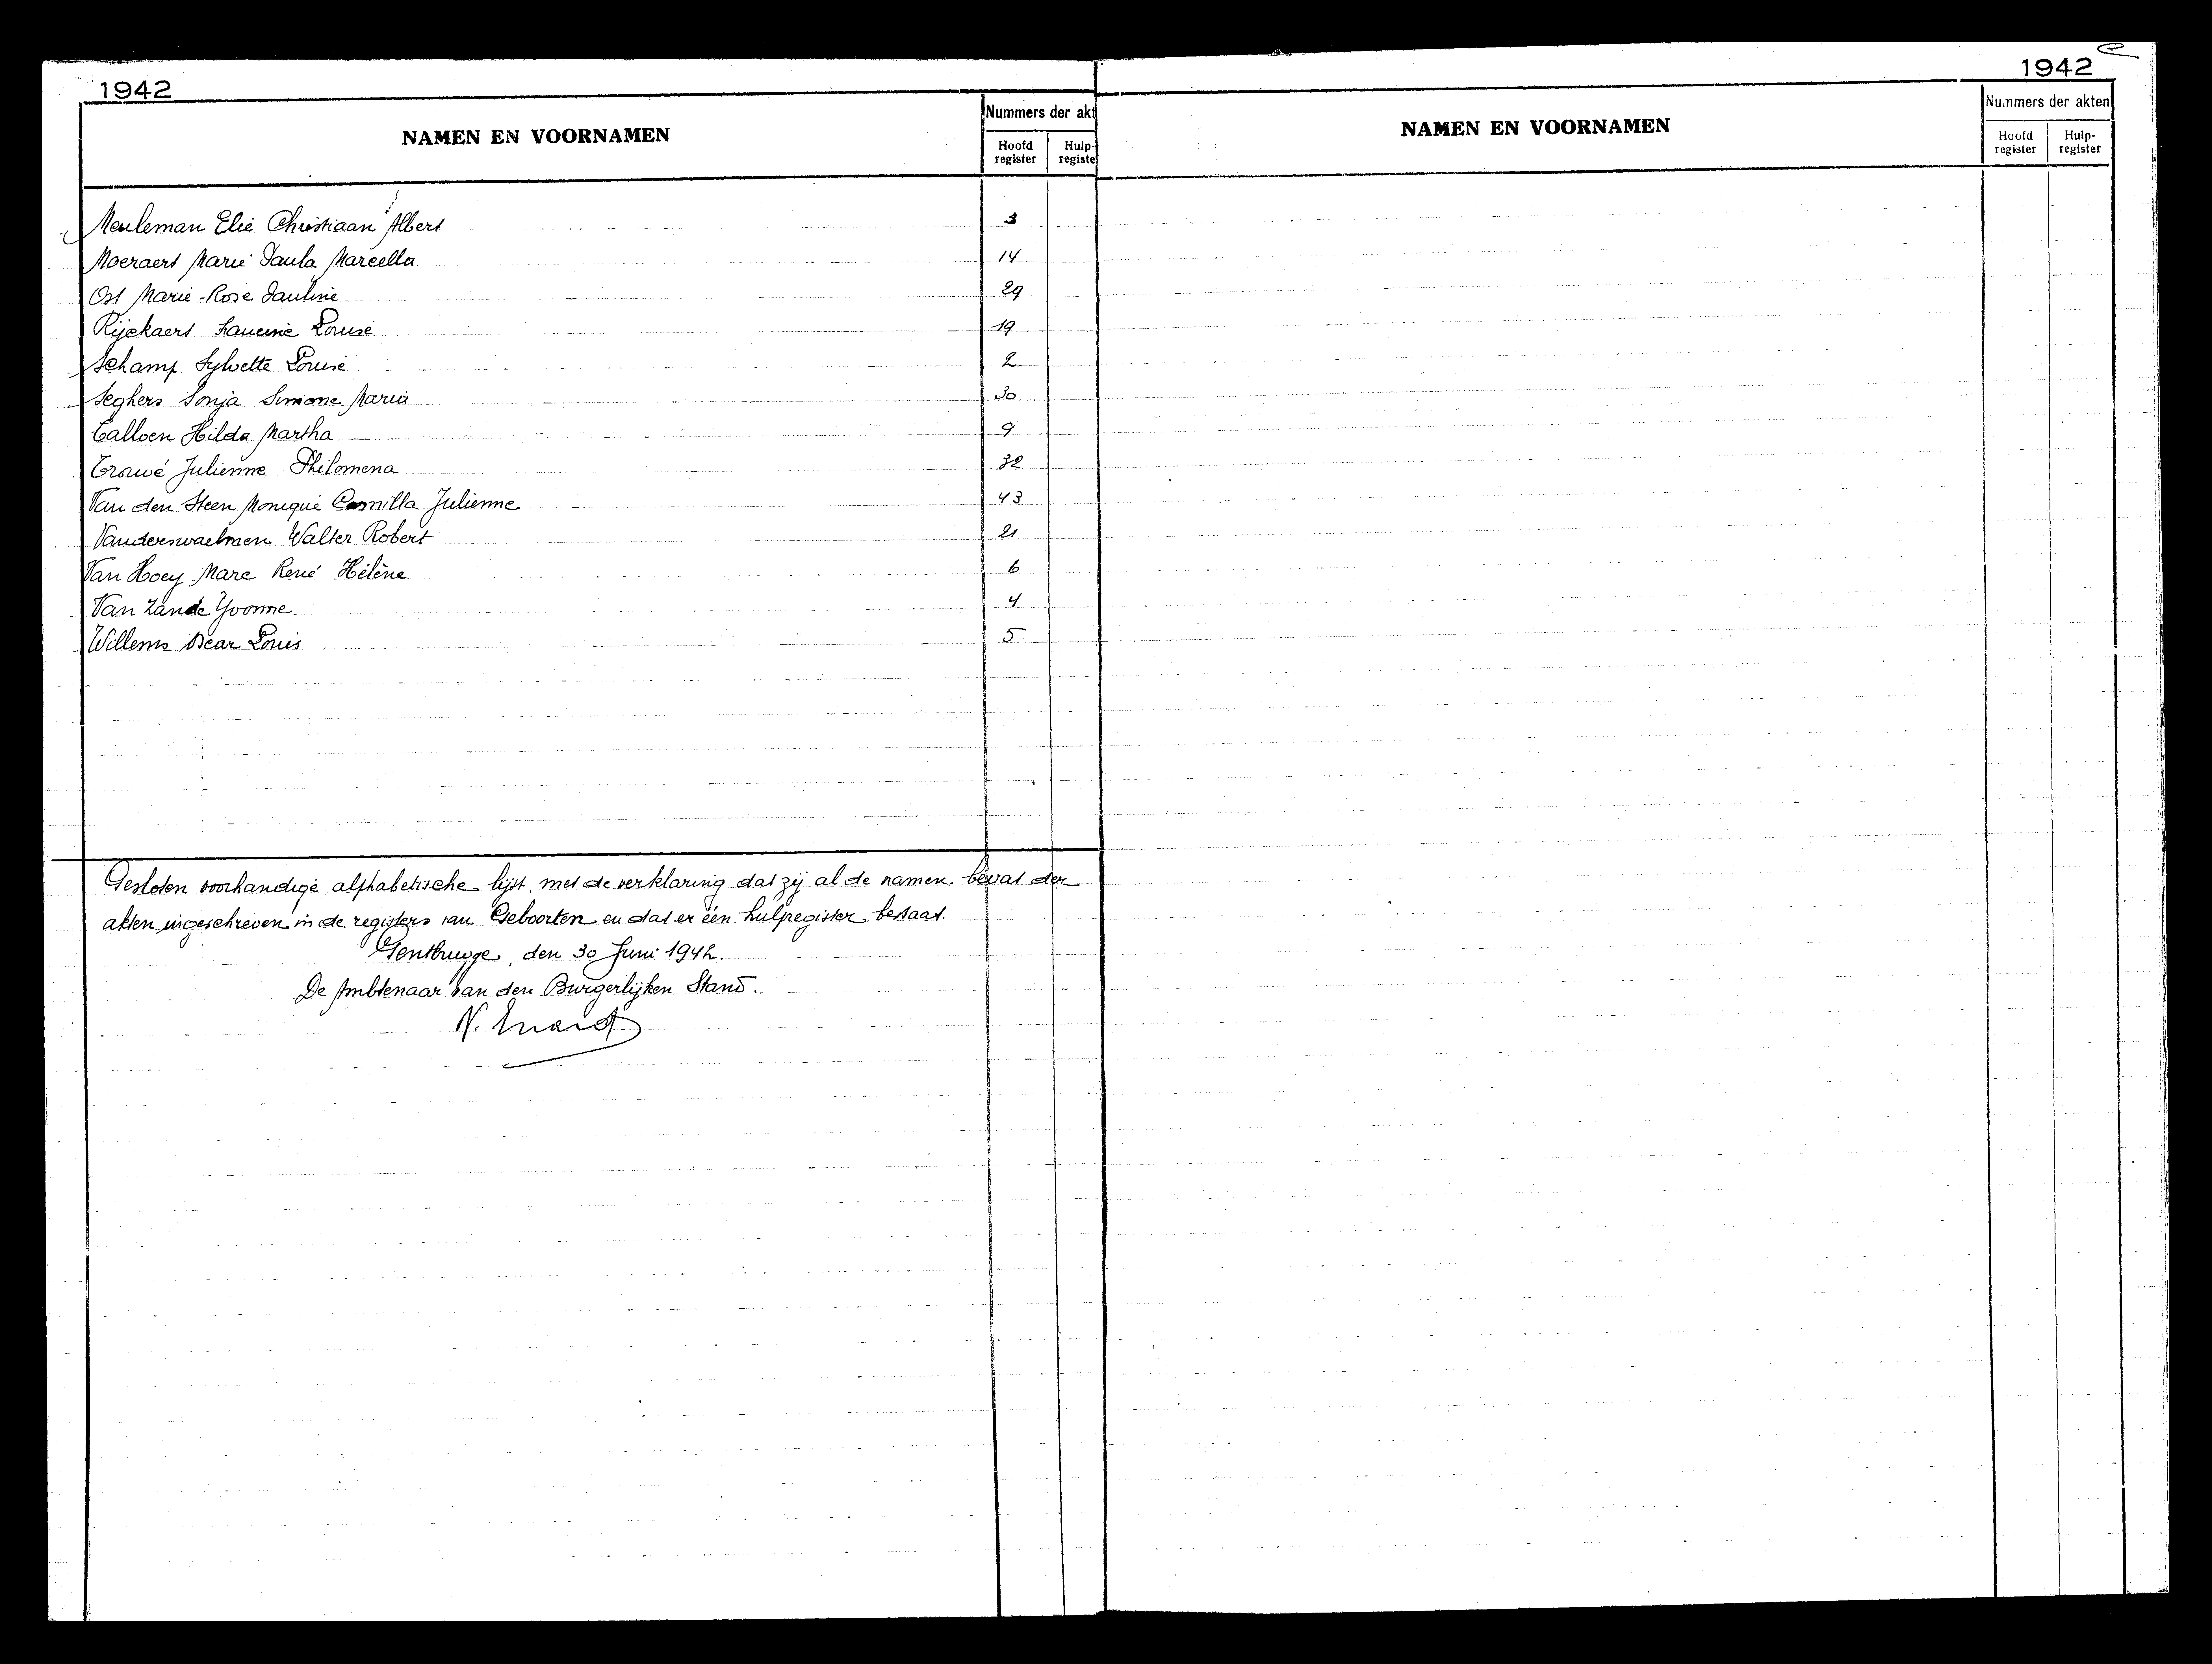 1942
NAMEN EN VOORNAMEN
Nummers der akt
Hoofd register
Hulp- registe
Meuleman Elie Christiaan Albert 3
Moeraert Marie Paula Marcella 14
Ost Marie-Rose Pauline 29
Rijckaert Louise 19
Schamp Sylvette Louise 2
Seghers Sonja Simone Maria 30
Calloen Hilda Martha 9
Trouvé Julienne Philomena 32
Van den Steen Monique Camilla Julienne 43
Vanderswaelmen Walter Robert 21
Van Hoey Marc René Hélène 6
Van Zande Yvonne 4
Willems Oscar Louis 5
Gesloten voorhandige alphabetische lijst, met de verklaring dat zij al de namen bevat der
akten ingeschreven in de registers van Geboorten en dat er één hulpregister bestaat.
Gentbrugge, den 30 Juni 1942.
De Ambtenaar van den Burgerlijken Stand.
1942
NAMEN EN VOORNAMEN
Nummers der akten
Hoofd register
Hulp- register